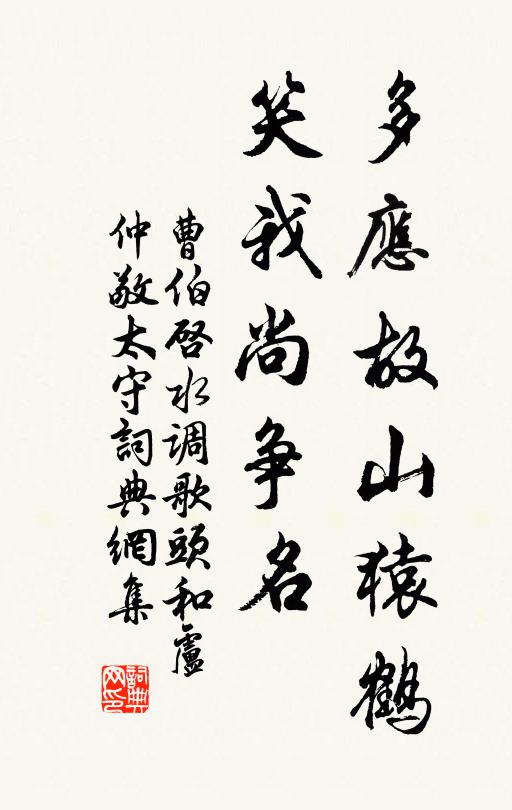 多應故山猿鶴
笑我尚争名
曹伯啓水调歌頭和盧
仲敬太守詞典網集
詞典網印